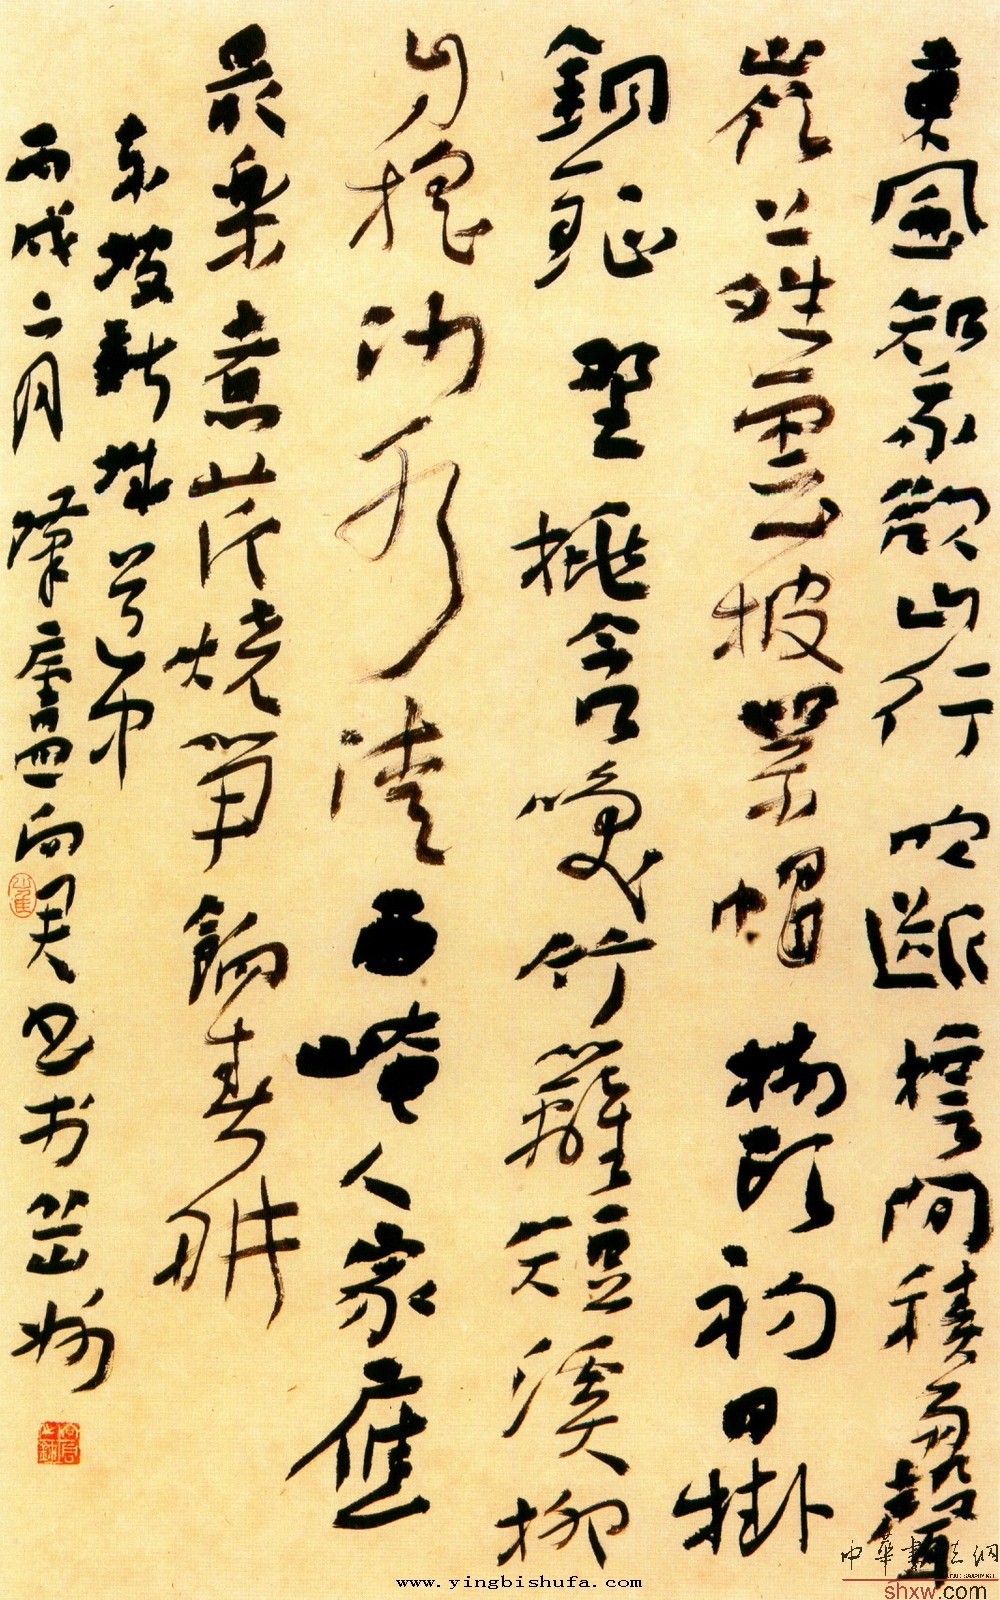 東風知我欲山行吹斷檐間積雨聲
嶺上晴雲披絮帽樹頭初日掛
銅鉦野桃含笑竹籬短溪柳
自搖沙水清西崦人家應
最樂煮芹燒筍餉春耕
东坡新城道中
丙戌二月肇廬向君书于芷州
www.yingbishufa.com
中華書法網
shxw.com